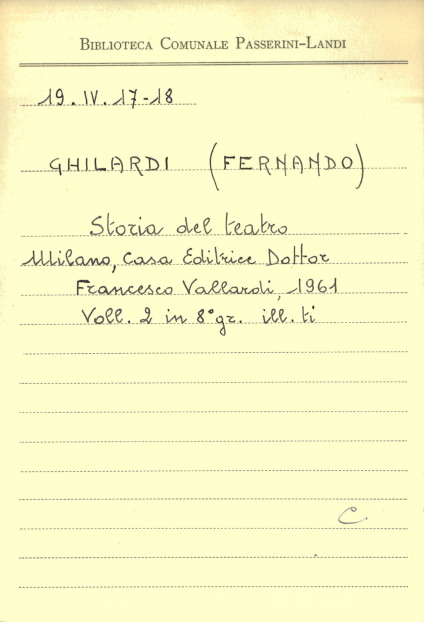 Biblioteca Comunale Passerini-Landi
19. IV. 17-18
GHILARDI (FERNANDO)
Storia del teatro
Milano, Casa Editrice Dottor
Francesco Vallardi, 1961
Voll. 2 in 8° gr. ill. ti
C